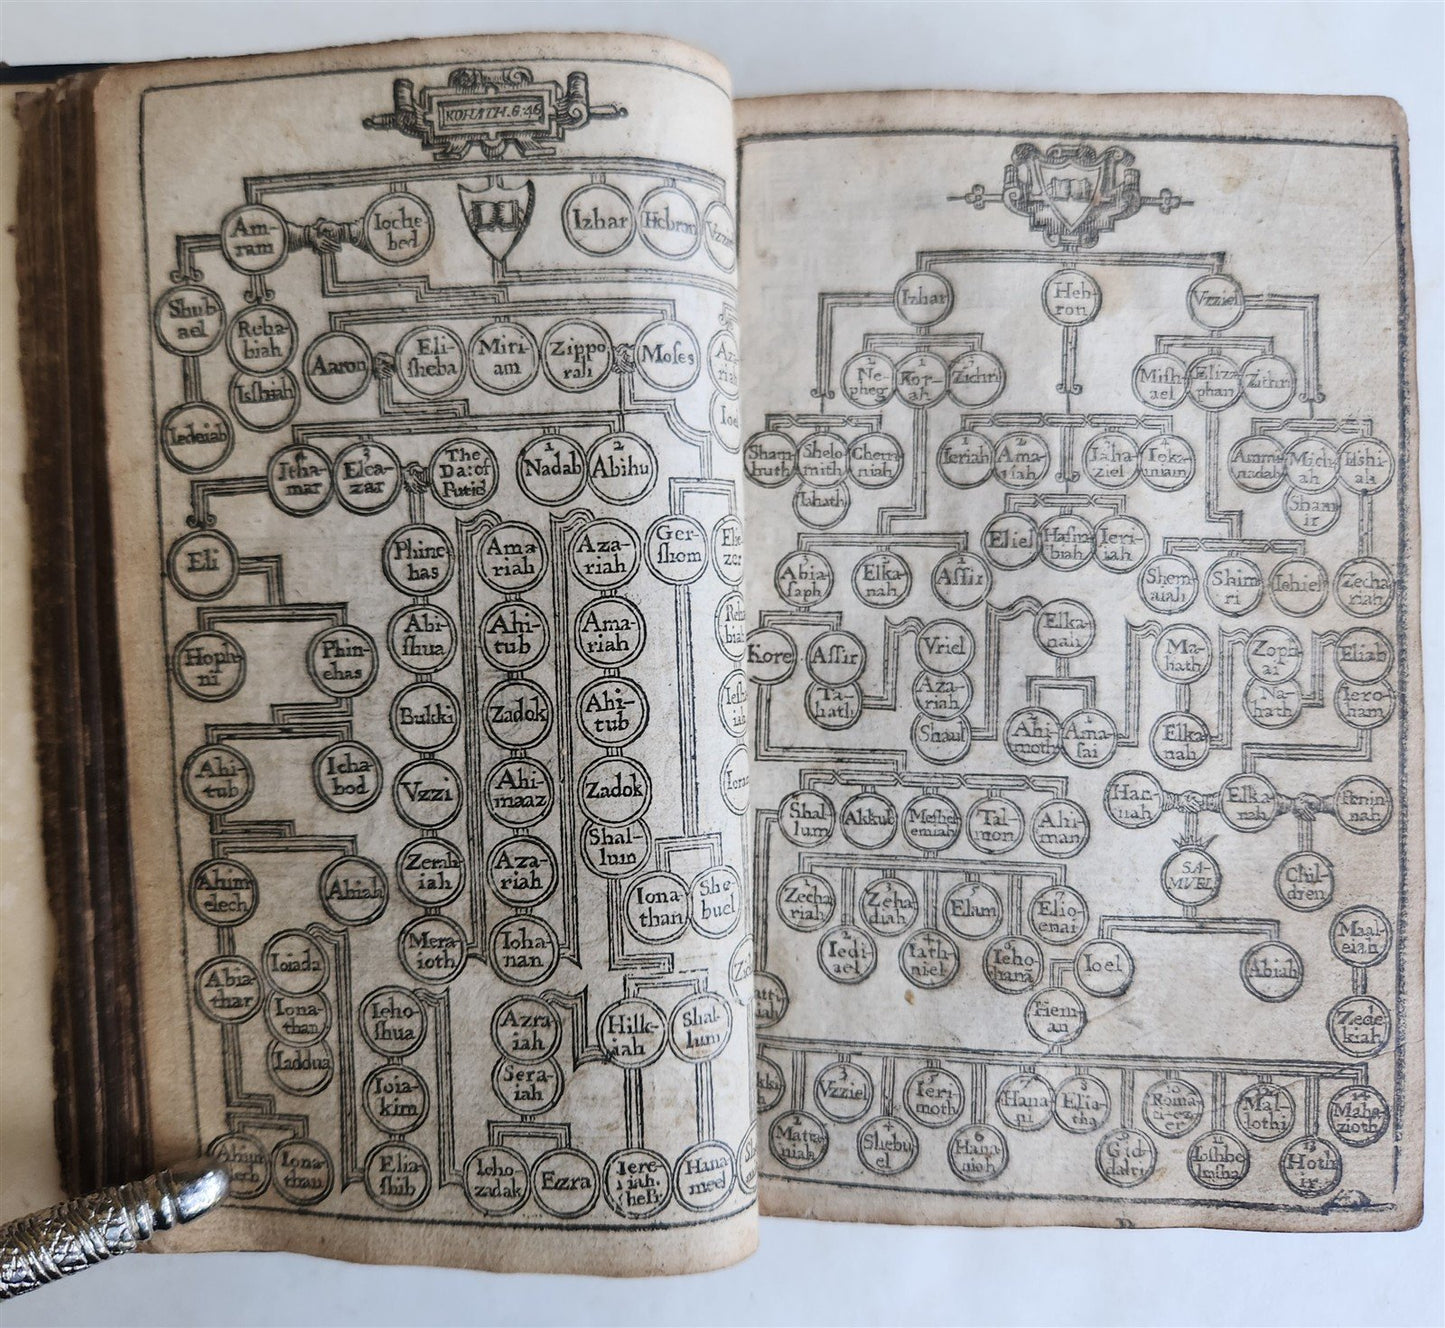 KOHATH. 6. 46
Am-
ram
Ioche
bed
Izhar
Hebron
Shub
ael
Reha
biah
Isshiah
Iedeiah
Aaron
Eli-
sheba
Miri-
am
Zippo
rah
Moses
Itha-
mar
Elea-
zar
The
Da: of
Putiel
1
Nadab
2
Abihu
Eli
Phine
has
Ama-
riah
Aza-
riah
Ger-
shom
Hoph
ni
Phin-
ehas
Abi-
shua
Ahi-
tub
Ama-
riah
Bukki
Zadok
Ahi-
tub
Ahi-
tub
Icha-
bod
Vzzi
Ahi-
maaz
Zadok
Shal-
lum
Ahim
elech
Ahiah
Zerah
iah
Aza-
riah
Iona-
than
She-
buel
Abia-
thar
Ioiada
Iona-
than
Iaddua
Mera-
ioth
Ioha-
nan
Ieho-
shua
Azra-
iah
Sera-
iah
Hilk-
iah
Shal-
lum
Ioia-
kim
Iona-
than
Elia-
shib
Ieho-
zadak
Ezra
Iere-
iah.
Hana
meel
Izhar
Heb-
ron
Vzziel
2
Ne-
pheg
1
Kor-
ah
3
Zichri
Mish-
ael
Eliza
phan
Zithri
Sham-
huth
Shelo
mith
Cherri-
niah
Iahath
1
Ieriah
2
Ama-
riah
3
Iaha-
ziel
4
Ieka-
miam
Ammi
nadab
Mich-
ah
Isshi-
ah
Sham-
ir
Eliel
Hasha-
biah
Ieri-
iah
Abia-
saph
Elka-
nah
Assir
Shem-
aiah
Shim-
ri
Iehiel
Zecha-
riah
Kore
Assir
Ta-
hath
Vriel
Aza-
riah
Shaul
Elka-
nah
2
Ahi-
moth
1
Ama-
sai
Ma-
hath
Elka-
nah
Zoph
ai
Na-
hath
Eliab
Iero-
ham
Shal-
lum
Akkub
Meshel
emiah
Tal-
mon
Ahi-
man
Han-
nah
Elka-
nah
Penin-
nah
SA-
MVEL
Chil-
dren
1
Zecha
riah
2
Iedi-
ael
3
Zeba-
diah
4
Iath-
niel
5
Elam
6
Ieho-
hana
7
Elio-
enai
Ioel
Abiah
Maa-
eiah
Zede
kiah
Hem-
an
2
Matta
niah
3
Vzziel
4
Shebu
el
5
Ieri-
moth
6
Hana
niah
7
Hana-
ni
8
Elia-
tha
9
Gid-
dalti
10
Roma-
ti-ez-
er
11
Ioshbe
kasha
Mal-
lothi
13
Hoth-
ir
14
Maha
zioth